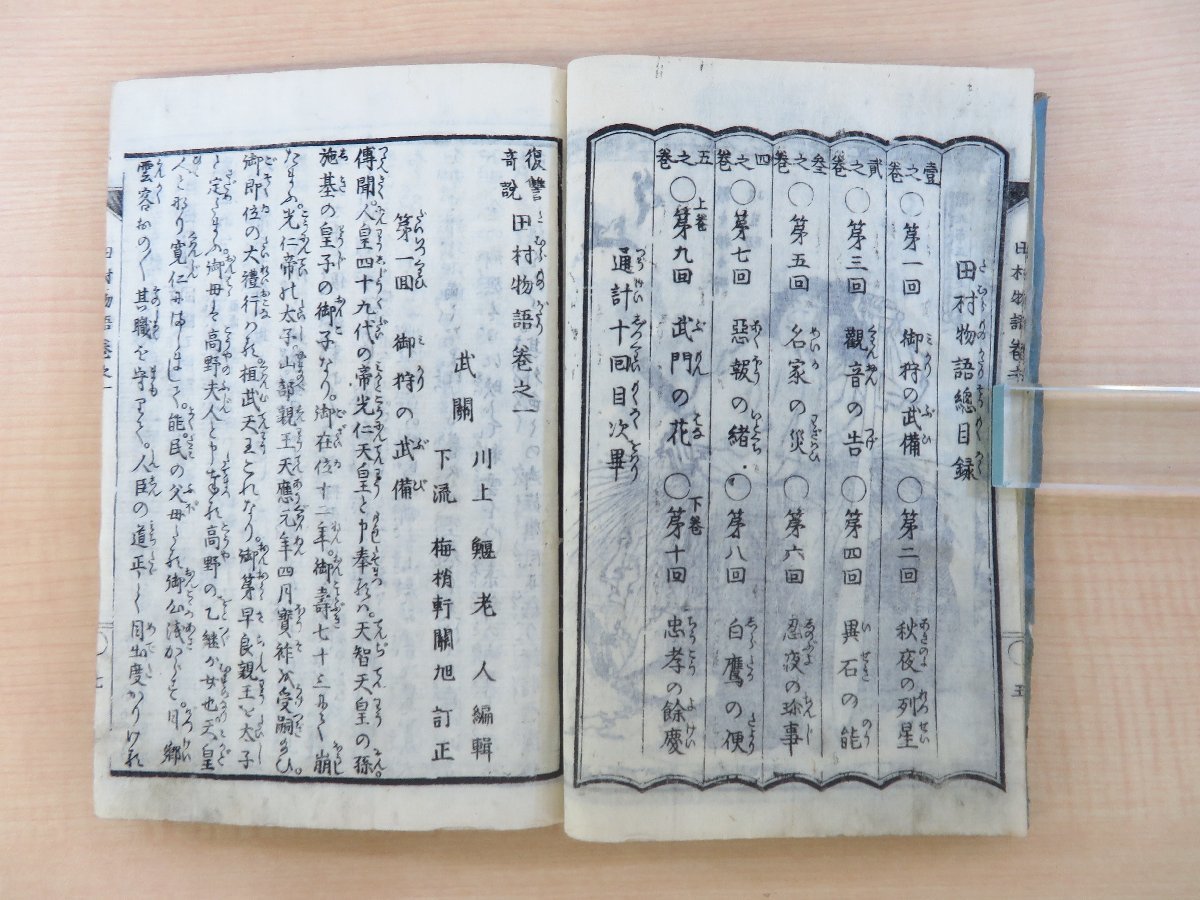 田村物語總目録
壹之卷 ○第一回 御狩の武備 ○第二回 秋夜の列星
貳之卷 ○第三回 觀音の告 ○第四回 異石の能
叄之卷 ○第五回 名家の災 ○第六回 忍夜の珎事
四之卷 ○第七回 惡報の緒 ○第八回 白鷹の便
五之卷 上卷 ○第九回 武門の花 下卷 ○第十回 忠孝の餘慶
通計十回目次畢
復讐奇説 田村物語卷之一
武關 川上鰋老人編輯
下流 梅梢軒關旭訂正
第一回 御狩の武備
傳聞。人皇四十九代の帝光仁天皇と申奉るハ。天智天皇の孫。
施基の皇子の御子なり。御在位十二年。御壽七十三にて崩
たまふ。光仁帝の太子。山部親王天應元年四月寶祚を受嗣給ひ。
御即位の大禮行る。桓武天王これなり。御弟早良親王を太子
と定たまふ。御母は高野夫人と申奉れ高野の乙継が女也。天皇
人となり寛仁にましまして。能民の父母たる御心淺からず。月卿
雲客おの〳〵其職を守りて。人臣の道正しく目出度かりけれ